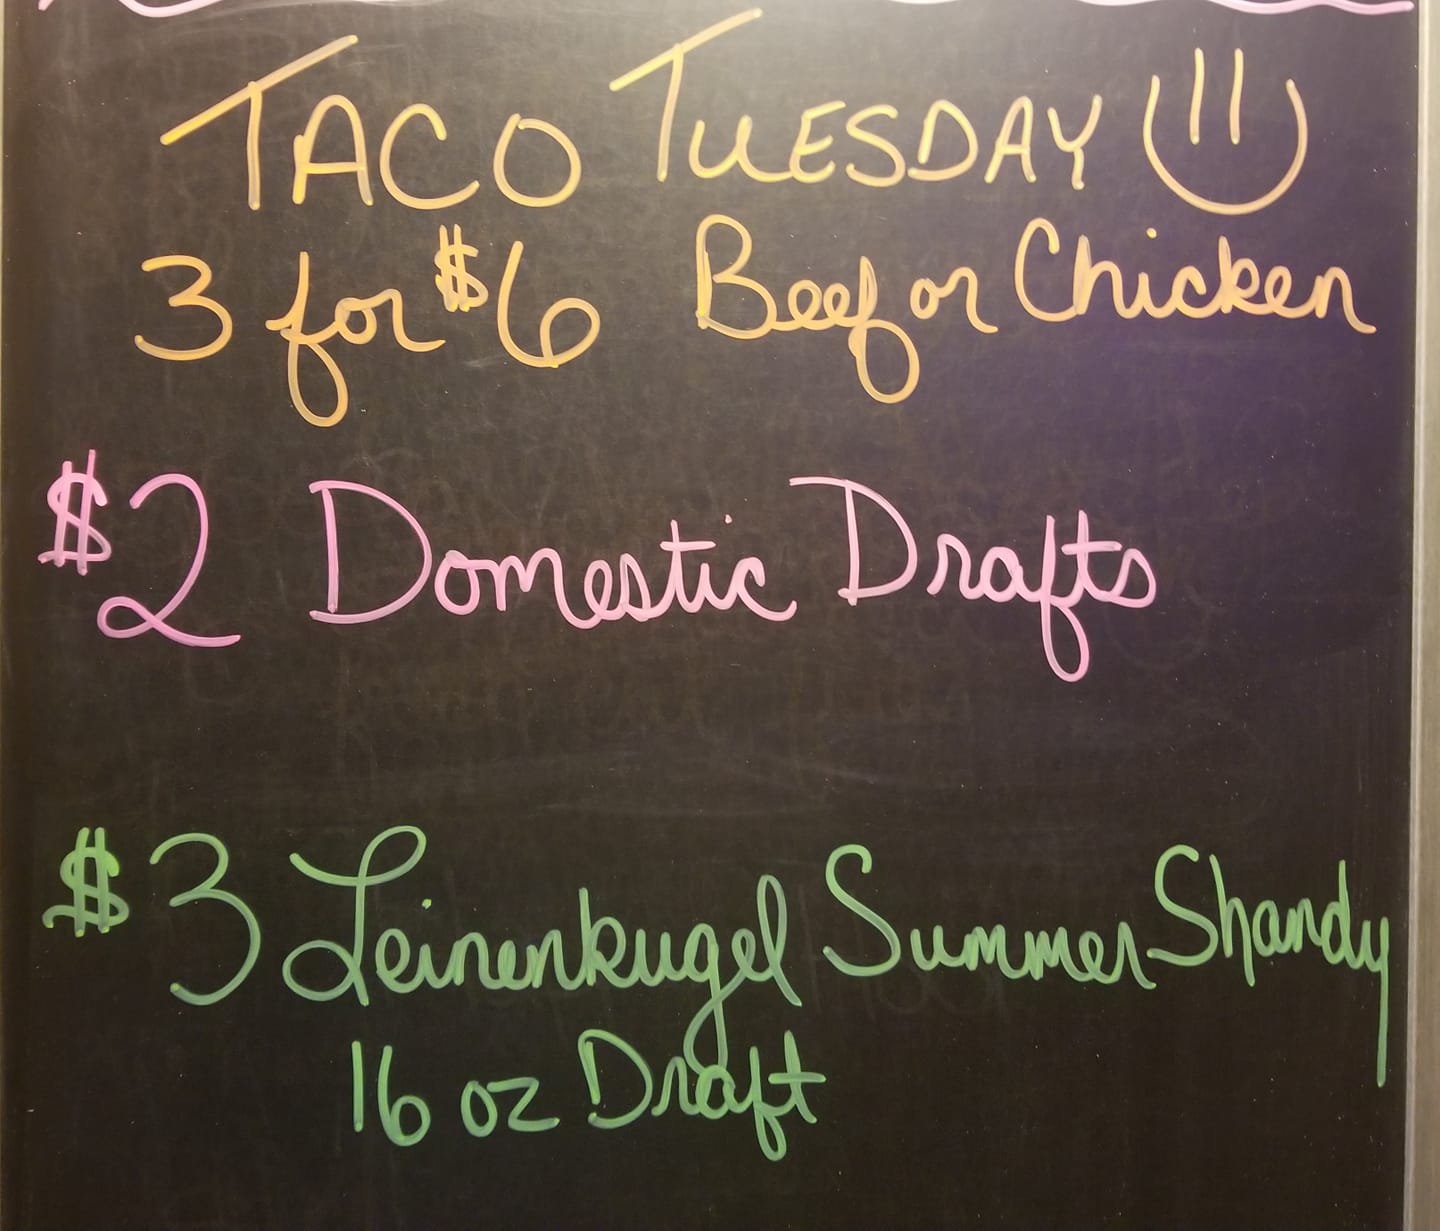 TACO TUESDAY
3 for $6 Beef or Chicken
$2 Domestic Drafts
$3 Leinenkugel Summer Shandy
16 oz Draft